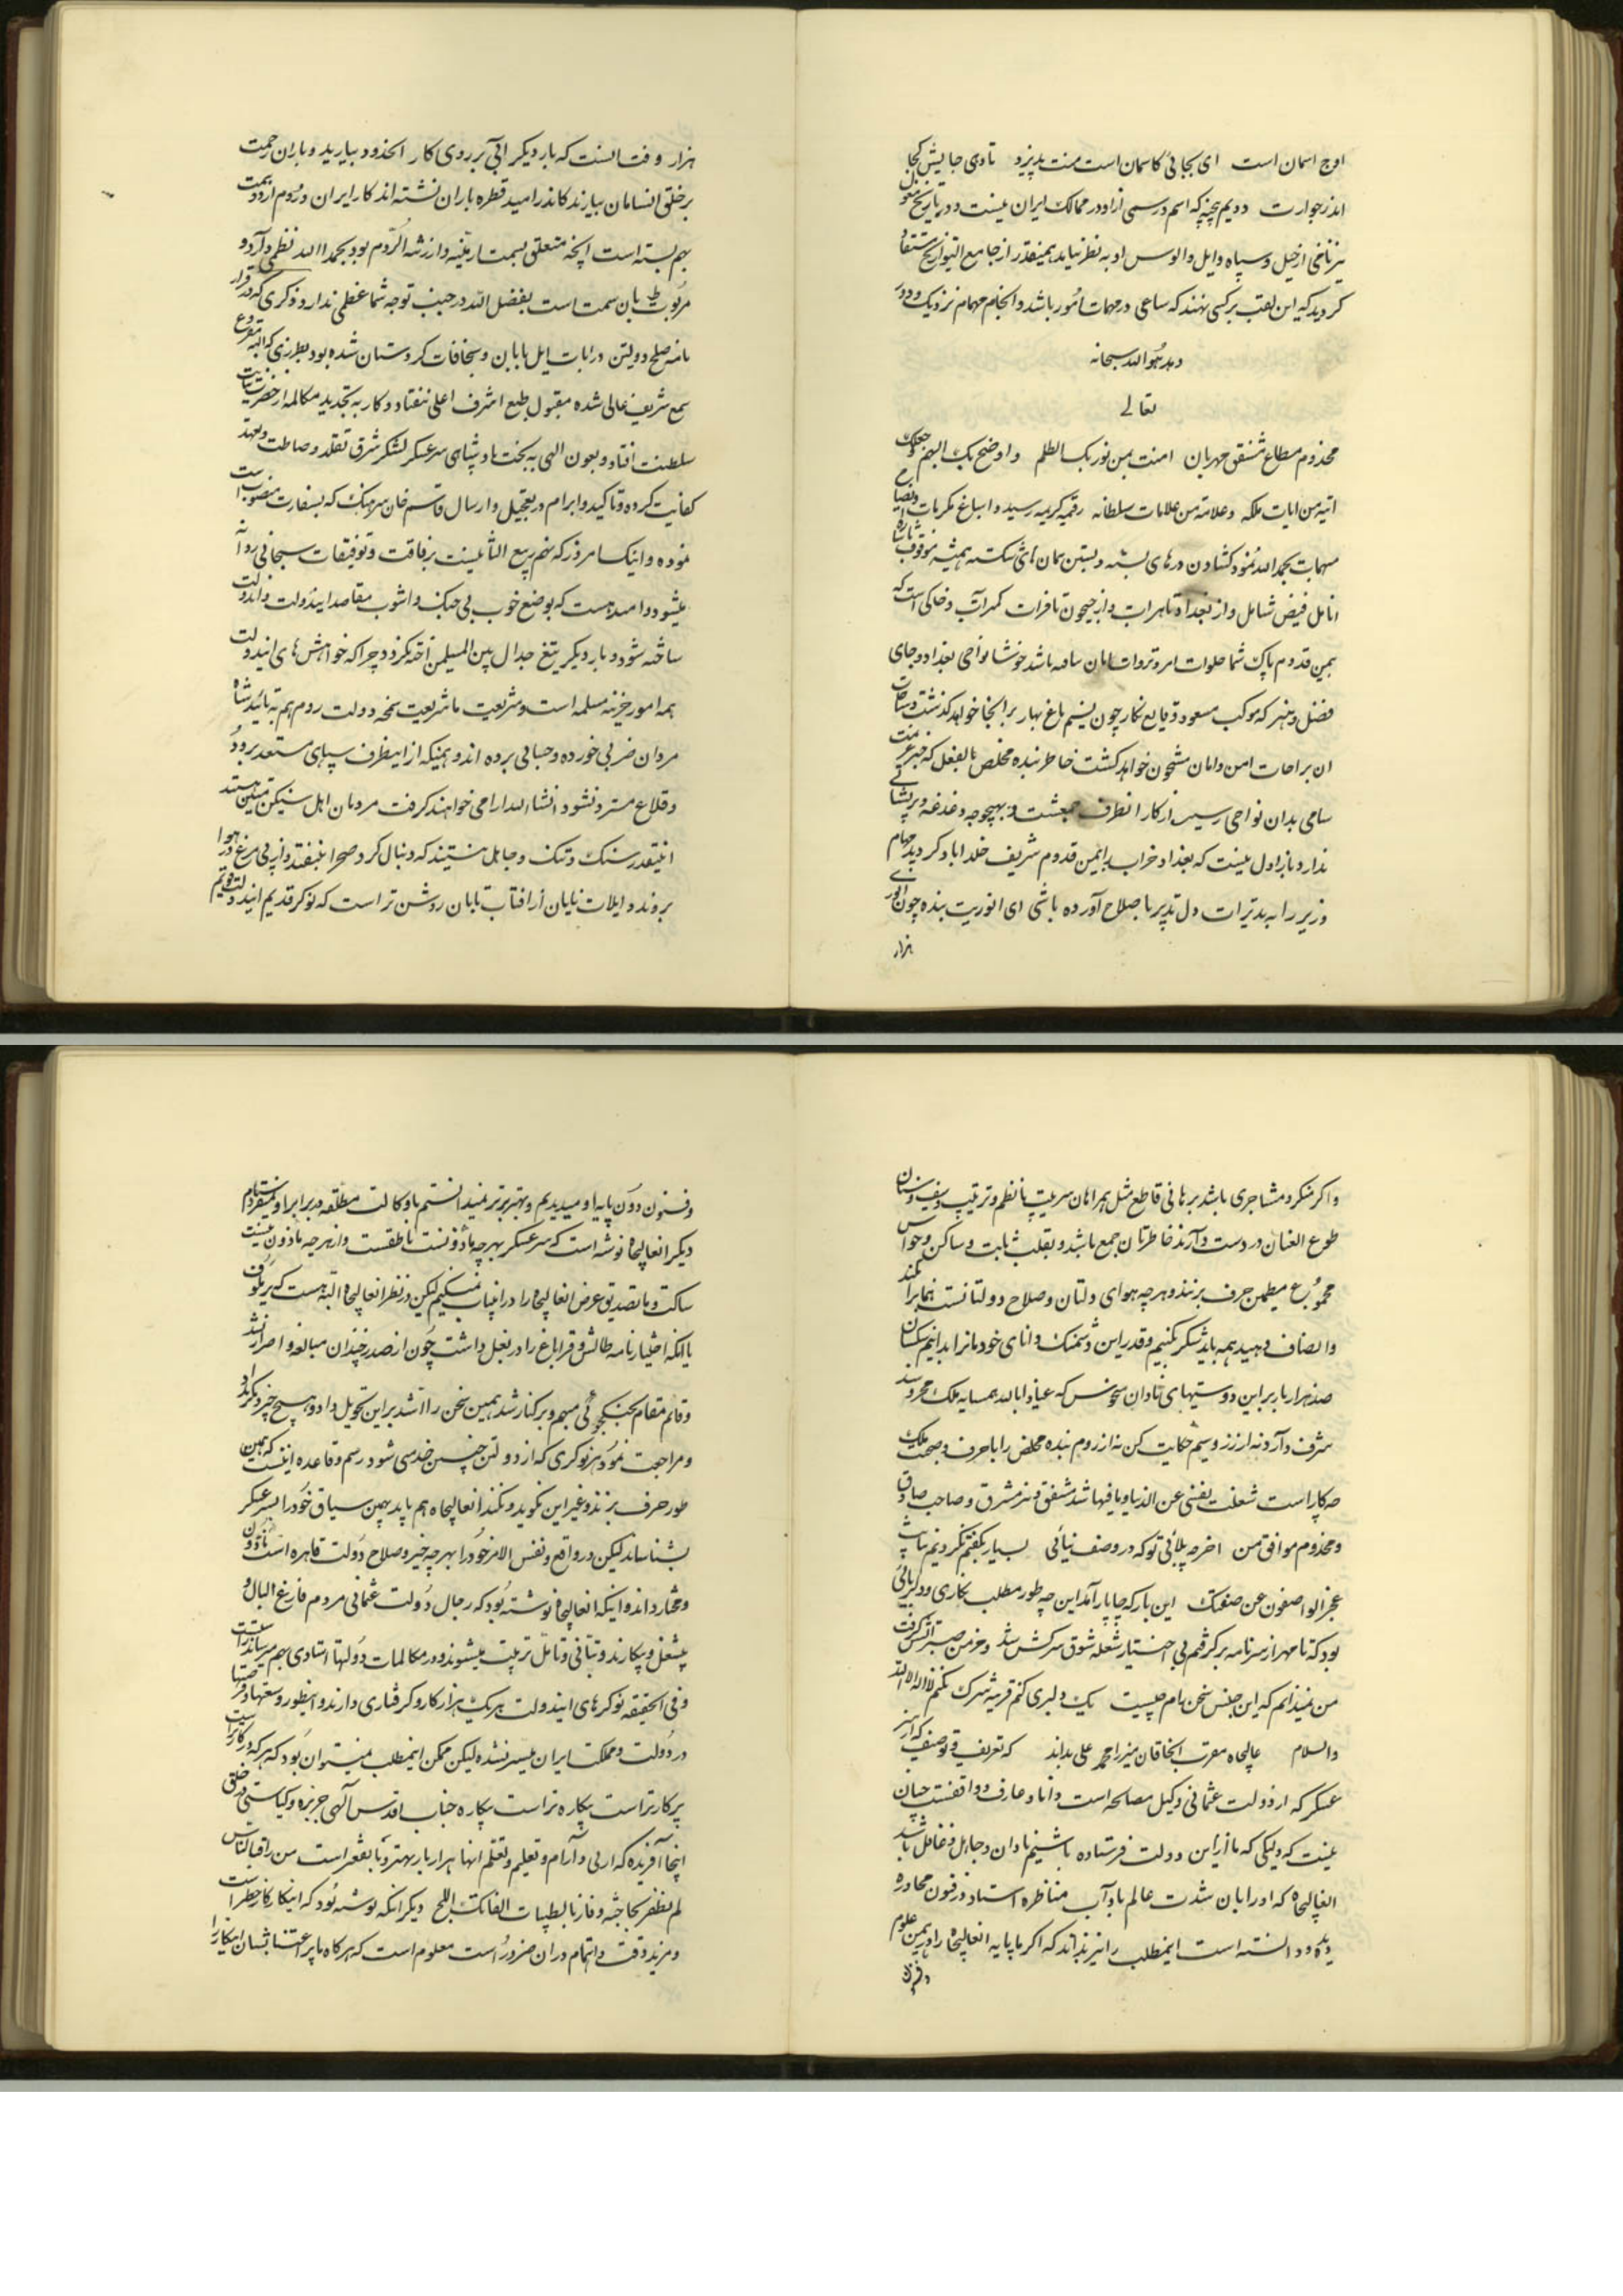 اوج اسمان است ای بجائی کاسمان است منت پذیرد تا وی جایش کجا
اندر جوارت دویم بچپه که اسم و رسمی از او در ممالک ایران نیست و در تاریخ مغول
نیز نامی از خیل و سپاه و ایل و الوس او به نظر نیامد همینقدر از جامع التواریخ مستفاد
کردید که این لقب بر کسی نهند که ساعی در مهمات امور باشد و انجام مهام نزدیک و دور
دهد هو الله سبحانه
تعالی
مخدوم مطاع مشفق مهربان امنت بمن نور بک الظلم و اوضح بک البهم و جعلک
ایة من ایات ملکه و علامة من علامات سلطانه رقمیه کریمه رسید و اسباغ مکرمات
مبهمات بحمد الله نمود کشادن درهای بسته و بستن همیشه موقوف
انامل فیض شامل و از بغداد تا هرات و از جیحون تا فرات کمر آب و خاکی است که
بیمن قدوم پاک شما باشد خوشا نواحی بغداد و جای
فضل و هنر که موکب مسعود وقایع نکار چون نسیم باغ بهار بر انجا خواهد کذشت و ساحات
ان براحات امن و امان مشحون خواهد کشت خاطر بنده مخلص بالفعل که خبر عزیمت
سامی بدان نواحی رسید از کار انطرف جمعست و بهیچوجه دغدغه و پریشانی
ندارد بار اول نیست که بغداد خراب را بیمن قدوم شریف خلد اباد کردید مهام
وزیر را به تدبیرات دل پذیر باصلاح آورده باشی ای انوریت بنده چون انوری
هزار
هزار وقت انست که بار دیکر ابی بر روی کار انحدود بیارید و باران رحمت
بر خلق انسامان ببارند کاندر امید قطره باران نشسته اند کار ایران و روم از دو سمت
بهم بسته است انچه متعلق بسمت ارمنیه و ارزنة الروم بود بحمد الله نظمی دارد و
مربوط بان سمت است بفضل الله در جنب توجه شما عظمی ندارد ذکری که در قرار
نامه صلح دولتین در باب ایل بابان و سنجاقات کردستان شده بود بطرزی که البته
سمع شریف عالی شده مقبول طبع اشرف اعلی نیفتاد و کار به تجدید مکالمه از حضرت نیابت
سلطنت افتاد و بعون الهی به بخت پادشاهی سرعسکر لشکر شرق تقلد وساطت و تعهد
کفایت کرده و تاکید و ابرام در تعجیل و ارسال قاسم خان سرهنک که بسفارت منصوب است
نموده و اینک امروز که پنجم ربیع الثانیست برفاقت و توفیقات سبحانی روانه
میشود و امید هست که بوضع خوب بی جنک و اشوب مقاصد ایندولت و اندولت
ساخته شود و بار دیکر تیغ جدال بین المسلمین اخته نکردد چرا که خواهش های ایندولت
همه امور جزئیه مسلمه است و شریعت با شریعت دولت روم هم به تائید شاه
مردان ضربی خورده و حسابی برده اند و همینکه از اینطرف سپاهی مستعد بر
و قلاع مسترد نشود انشاء الله ارامی خواهند کرفت مردمان اهل متین هستند
انیقدر سبک و تنک و جاهل نیستند که دنبال کرد صحرا بیفتند و از پی مرغ در هوا
بروند و ایلات بابان از افتاب تابان روشن تر است که نوکر قدیم ایندولت قویم
و اکر منکر و مشاجری باشد برهانی قاطع مثل همراهان سرتیپ با نظم و ترتیب و سیف و سنان
طوع العنان در دست دارند خاطرتان جمع باشد و بقلب ثابت و ساکن و حواس
مجموع مطمئن حرف بزنند و هر چه هوای دلتان و صلاح دولتانست همانرا بکنند
و انصاف دهید همه باید شکر بکنیم و قدر این دشمنک دانای خودمانرا بدانیم که بسان
صد هزار بار بر این دوستیهای نادان منحوس که عیاذا بالله همسایه ملک محروسند
شرف دارد نه از رز و سیم حکایت کن نه از روم بنده مخلص را با حرف و صحبت ملک
چه کار است شغلت یغنی عن الدنیا و ما فیها شد مشفق و نیز مشرق و صاحب صادق
و مخدوم موافق من اخر چه بلائی تو که در وصف نیائی بسیار بکفتیم نکردیم بیانت
عجز الواصفون عن صفتک این بار که چاپار آمد این چه طور مطلب نکاری و دلربائی
بود که تا مهر از سر نامه بر کرفتم بی اختیار شعله شوق سرکش شد و خرمن صبر آتش کرفت
من نمیدانم که این جنس سخن نام چیست یک دلبری کنم قریه شرک نکنم لا اله الا الله
والسلام عالیجاه مقرب الخاقان میرزا محمد علی بداند که تعریف و توصیف که از سر
عسکر که از دولت عثمانی وکیل مصالحه است و دانا و عارف و واقفست چنان
نیست که وکیلی که ما از این دولت فرستاده باشیم نادان و جاهل و غافل باشد
انعالیجاه که او را بان شدت عالم باداب مناظره استاد در فنون محاوره
دیده و دانسته است اینمطلب را نیز بداند که اکر ما پایه انعالیجاه را در همین علوم
و فنون
و فنون دون پایه او میدیدیم و بهتر و برتر نمیدانستیم با وکالت مطلقه در برابر او نمیفرستادم
دیکر انعالیجاه نوشته است که سرعسکر بهر چه ماذونست ناطقست و از هر چه ماذون نیست
ساکت و ما تصدیق عرض انعالیجاه را در اینباب میکنیم لیکن در نظر انعالیجاه البته هست که
با انکه اختیار نامه طالش و قراباغ را در بغل داشت چون از صدر چندان مبالغه و اصرار نشد
و قائم مقام بجنکجوئی مبهم و برکنار شد همین سخن را بر این تحویل داد و هیچ چیز دیکر نکرد
و مراجعت نمود هر نوکری که از دولتی چنین خدمتی شود رسم و قاعده اینست که همین
طور حرف بزند و غیر این نکوید و نکند انعالیجاه هم باید بهمین سیاق خود را بسرعسکر
بشناساند لیکن در واقع و نفس الامر خود را بهر چه خیر و صلاح دولت قاهره است ماذون
و مختار داند و اینکه انعالیجاه نوشته بود که رجال دولت عثمانی مردم فارغ البال و
بیشغل و بیکارند و بتانی و تامل تربیت میشوند و در مکالمات دولتها استادی بهم میرسانند راست
و فی الحقیقه نوکرهای ایندولت هر یک هزار کار و کرفتاری دارند و اینطور وسعتها و فرصتها
در دولت و مملکت ایران میسر نشده لیکن ممکن اینمطلب میتوان بود که هر که در کار است
پرکارتر است بیکاره تر است بیکاره جناب اقدس آلهی جربزه و کیاستی در خلق
اینجا آفریده که از بی آرام و تعلیم و تعلم انها هزار بار بهتر و با نفع تر است من راقب الناس
لم یظفر بحاجته و فاز بالطیبات الفاتک اللهج دیکر انکه نوشته بود که اینکار کار خطیر است
و مزید دقت و اتمام در ان ضرور است معلوم است که هرکاه ما پر اعتنا بشان اینکار